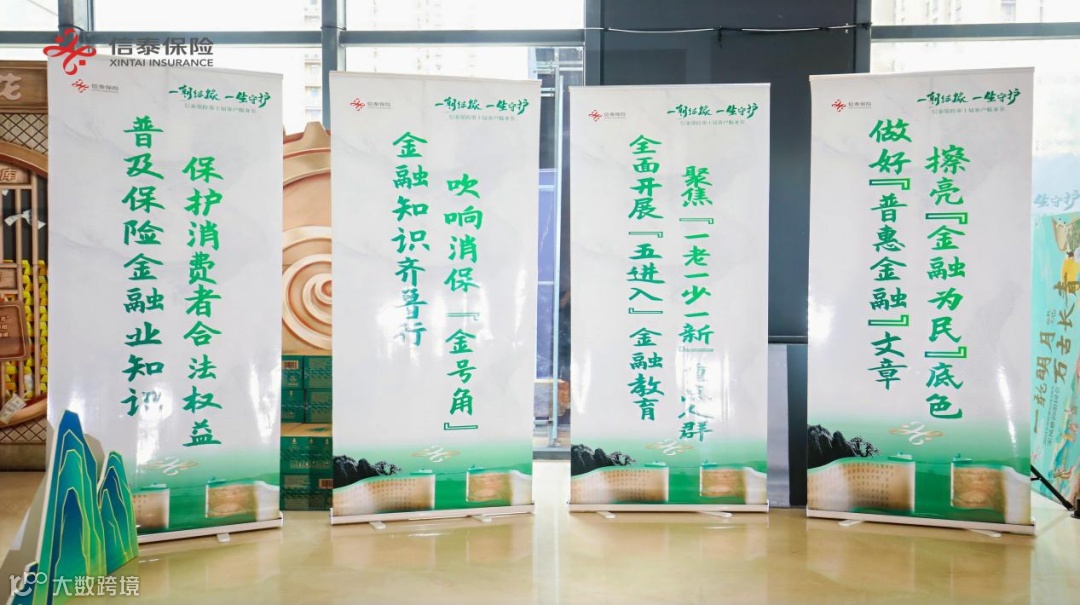 信泰保险
XINTAI INSURANCE
信泰保险
一朝信泰 一生守护
保护消费者合法权益
普及保险金融业知识
信泰保险
一朝信泰 一生守护
吹响消保『金号角』
金融知识齐鲁行
信泰保险
一朝信泰 一生守护
聚焦『一老一少一新』重点人群
全面开展『五进入』金融教育
信泰保险
一朝信泰 一生守护
擦亮『金融为民』底色
做好『普惠金融』文章
一生守护
大数跨境